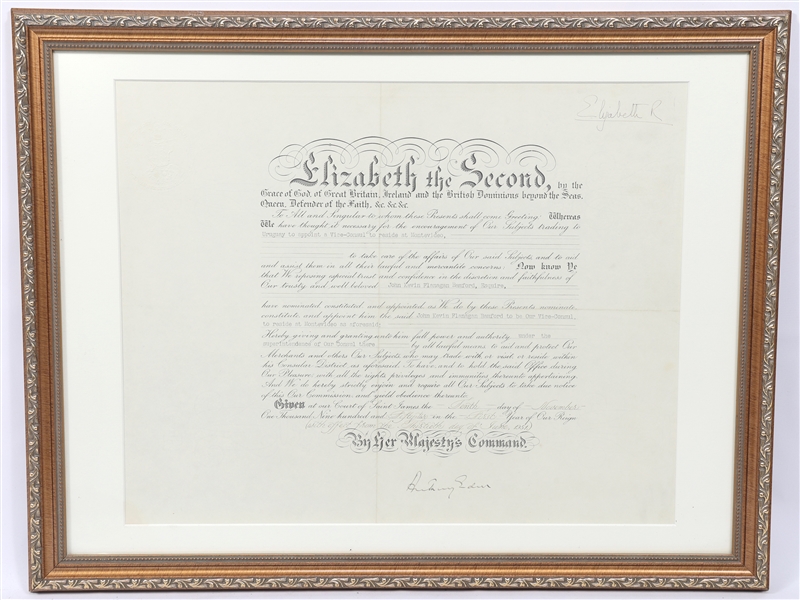 Elizabeth R
Elizabeth the Second, by the
Grace of God, of Great Britain, Ireland and the British Dominions beyond the Seas.
Queen, Defender of the Faith, &c. &c. &c.
To All and Singular to whom these Presents shall come Greeting Whereas
We have thought it necessary for the encouragement of Our Subjects trading to
Uruguay to appoint a Vice-Consul to reside at Montevideo,
to take care of the affairs of Our said Subjects and to aid
and assist them in all their lawful and mercantile concerns: Now know Ye
that We reposing especial trust and confidence in the discretion and faithfulness of
Our trusty and well beloved John Kevin Flanagan Bomford, Esquire,
have nominated constituted and appointed, as We do by these Presents nominate
constitute and appoint him the said John Kevin Flanagan Bomford to be Our Vice-Consul,
to reside at Montevideo as aforesaid;
Hereby giving and granting unto him full power and authority, under the
superintendence of Our Consul there by all lawful means to aid and protect Our
Merchants and others Our Subjects who may trade with or visit or reside within
his Consular District as aforesaid: To have and to hold the said Office during
Our Pleasure with all the rights privileges and immunities thereunto appertaining.
And We do hereby strictly enjoin and require all Our Subjects to take due notice
of this Our Commission and yield obedience thereto.
Given at our Court of Saint James the day of November
One Thousand Nine hundred and in the Year of Our Reign
By Her Majesty's Command.
Anthony Eden